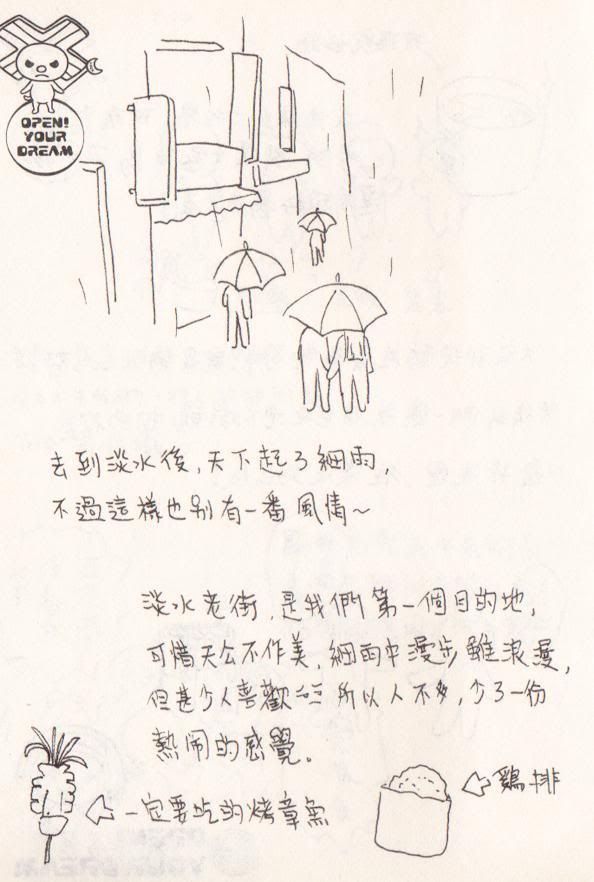 OPEN!
YOUR
DREAM
去到淡水後,天下起了細雨,
不過這樣也別有一番風情~
淡水老街,是我們第一個目的地,
可惜天公不作美,細雨中漫步雖浪漫,
但甚少人喜歡 所以人不多,少了一份
熱鬧的感覺。
一定要吃的烤章魚
鷄排